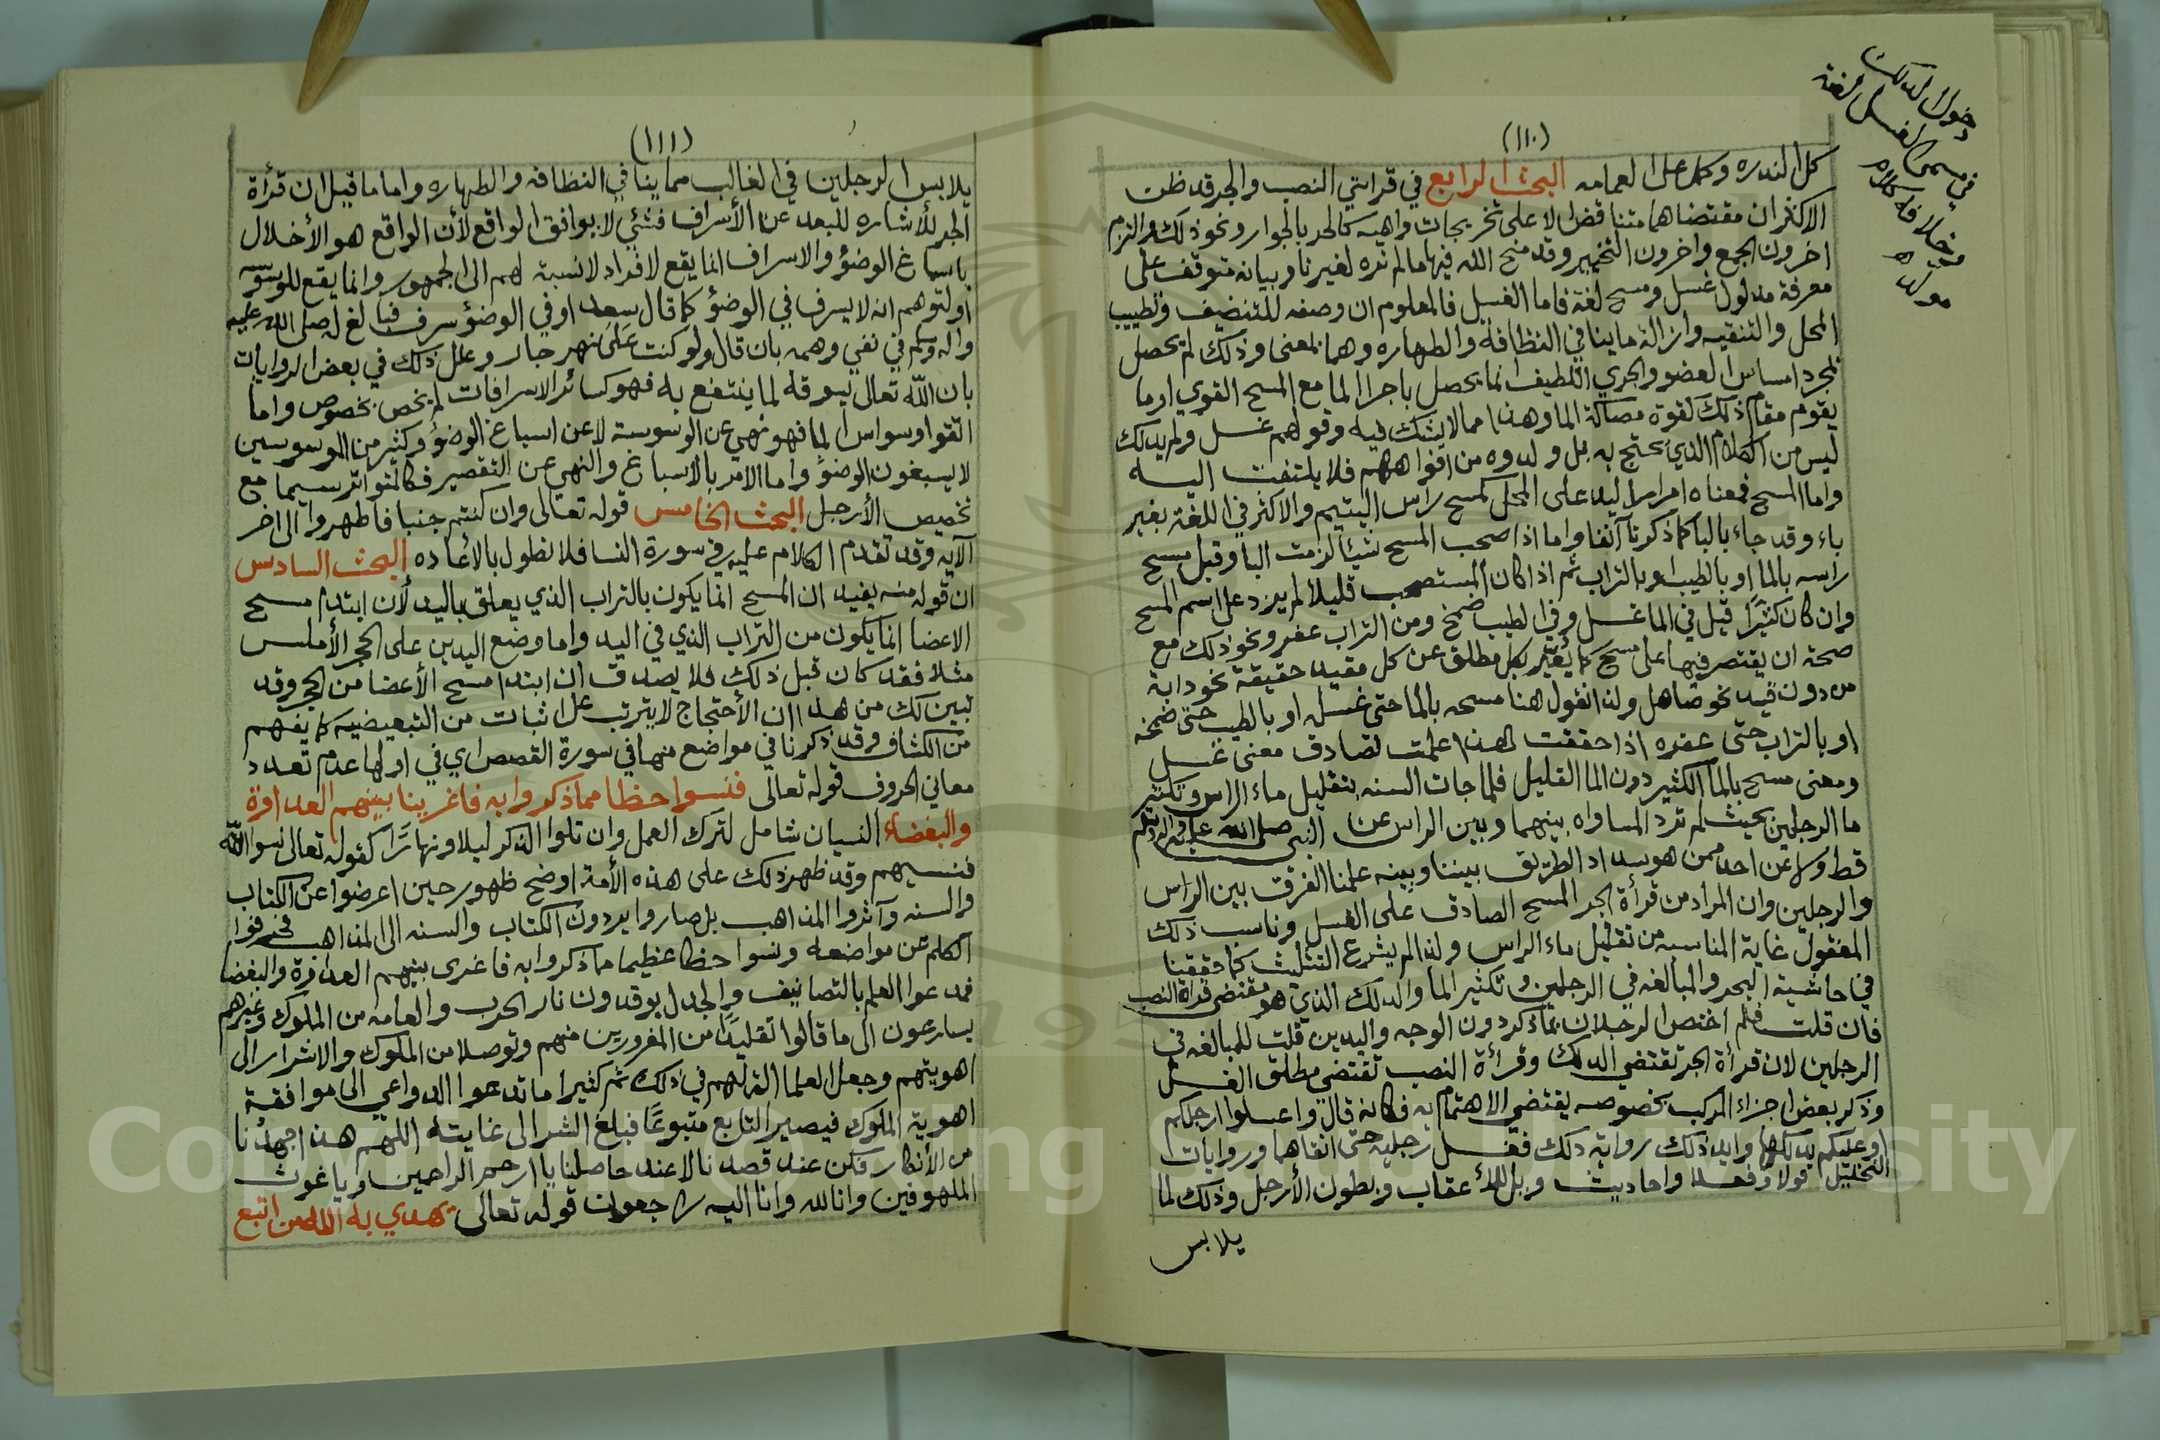 (١١٠)
كل الندره وكمل على العمامه البحث الرابع في قرايتي النصب والجر قد ظن
الاكثر ان مقتضاهما متناقض لا على تخريجات واهيه كالجر بالجوار ونحو ذلك والتزم
اخرون الجمع واخرون التخيير وقد منح الله فيها ما لم نره لغيرنا وبيانه متوقف على
معرفة مدلول غسل ومسح لغة فاما الغسل فالمعلوم ان وصفه للتنضيف وتطييب
المحل والتنقيه وازالة ما ينافي النظافة والطهاره وهما بمعنى وذلك لم يحصل
بمجرد امساس العضو والجري اللطيف انما يحصل باجرا الما مع المسح القوي او ما
يقوم مقام ذلك كقوة مصاكة الما وهذا مما لا يشك فيه وقولهم غسل ولم يدلك
ليس من الكلام الذي يحتج به بل ولدوه من افواههم فلا يلتفت اليه
واما المسح فمعناه امرار اليد على المحل كمسح راس اليتيم والاكثر في اللغة بغير
باء وقد جاء بالبا كما ذكرنا آنفا واما اذا صحب المسح شيئا لزمت البا وقيل مسح
راسه بالما او بالطيب او بالتراب ثم اذا كان المستصحب قليلا لم يزد على اسم المسح
وان كان كثيرا قيل في الما غسل وفي الطيب ضمخ ومن التراب عفر ونحو ذلك مع
صحة ان يقتصر فيها على مسح كما يعبر بكل مطلق عن كل مقيد حقيقة نحو دابة
من دون قيد نحو صاهل ولذا نقول هنا مسحه بالما حتى غسله او بالطيب حتى ضمخه
او بالتراب حتى عفره اذا حققت لهذا علمت تصادق معنى غسل
ومعنى مسح بالما الكثير دون الما القليل فلما جات السنه بتقليل ماء الراس وتكثير
ما الرجلين بحيث لم ترد المساواه بينهما وبين الراس عن النبي صلى الله عليه واله وسلم
قط ولا عن احد ممن هو سداد الطريق بيننا وبينه علمنا الفرق بين الراس
والرجلين وان المراد من قرأة الجر المسح الصادق على الغسل وناسب ذلك
المعقول غاية المناسبه من تقليل ماء الراس ولذا لم يشرع التثليث كما حققنا
في حاشية البحر والمبالغه في الرجلين وتكثير الما والدلك الذي هو مقتضى قرأة النصب
فان قلت فلم اختص الرجلان بما ذكر دون الوجه واليدين قلت للمبالغه في
الرجلين لان قرأة الجر تقتضي الدلك وقرأة النصب تقتضي مطلق الغسل
وذكر بعض اجزاء المركب بخصوصه يقتضي الاهتمام به فكانه قال واغسلوا ارجلكم
وعليكم بدلكها وايد ذلك رواية دلك فغسل رجليه حتى انقاهما وروايات
التخليل قولا وفعلا واحاديث ويل للاعقاب وبطون الأرجل وذلك لما
يلابس
دخول الدلك
في مسمى الغسل لغة
وخلافه كلام
مولد ه
(١١١)
يلابس الرجلين في الغالب مما ينافي النظافه والطهاره واما ما قيل ان قرأة
الجر للأشاره للبعد عن الأسراف فشئي لا يوافق الواقع لأن الواقع هو الأخلال
باسباغ الوضؤ والاسراف انما يقع لافراد لا نسبة لهم الى الجمهور وانما يقع للوسوسه
او لتوهم انه لا يسرف في الوضؤ كما قال سعد اوفي الوضؤ سرف فبالغ له صلى الله عليه
واله وسلم في نفي وهمه بان قال ولو كنت على نهر جار وعلل ذلك في بعض الروايات
بان الله تعالى يسوقه لما ينتفع به فهو كسائر الاسرافات لم يخص بخصوص واما
اتقوا وسواس الما فهو نهي عن الوسوسة لا عن اسباغ الوضؤ وكثير من الموسوسين
لا يسبغون الوضؤ واما الامر بالاسباغ والنهي عن التقصير فكالمتواتر سيما مع
تخصيص الأرجل البحث الخامس قوله تعالى وان كنتم جنبا فاطهروا الى اخر
الآيه وقد تقدم الكلام عليه في سورة النسا فلا نطول بالأعاده البحث السادس
ان قوله منه يفيد ان المسح انما يكون بالتراب الذي يعلق باليد لأن ابتداء مسح
الاعضا انما يكون من التراب الذي في اليد واما وضع اليدين على الحجر الأملس
مثلا فقد كان قبل ذلك فلا يصدق ان ابتداء مسح الأعضا من الحجر وقد
تبين لك من هذا ان الأحتجاج لا يترتب على اثبات من التبعيضيه كما يفهم
من الكشاف وقد ذكرنا في مواضع منها في سورة القصص اي في اولها عدم تعدد
معاني الحروف قوله تعالى فنسوا حظا مما ذكروا به فاغرينا بينهم العداوة
والبغضاء النسيان شامل لترك العمل وان تلوا الذكر ليلا ونهارا كقوله تعالى نسوا الله
فنسيهم وقد ظهر ذلك على هذه الأمة اوضح ظهور حين اعرضوا عن الكتاب
والسنه وآثروا المذاهب بل صاروا يردون الكتاب والسنه الى المذاهب فحرفوا
الكلم عن مواضعه ونسوا حظا عظيما مما ذكروا به فاغرى بينهم العداوة والبغضا
فمدعوا العلم بالتصانيف والجدل يوقدون نار الحرب والعامه من الملوك وغيرهم
يسارعون الى ما قالوا تقليدا من المغرورين منهم وتوصلا من الملوك والاشرار الى
اهويتهم وجعل العلما الة لهم في ذلك ثم كثيرا ما تدعوا الدواعي الى موافقة
اهوية الملوك فيصير التابع متبوعًا فبلغ الشر الى غايته اللهم هذا جهدنا
من الأنكار فكن عند قصدنا لا عند حاصلنا يا ارحم الراحمين ويا غوث
الملهوفين وانا لله وانا اليه راجعون قوله تعالى يهدي به الله من اتبع